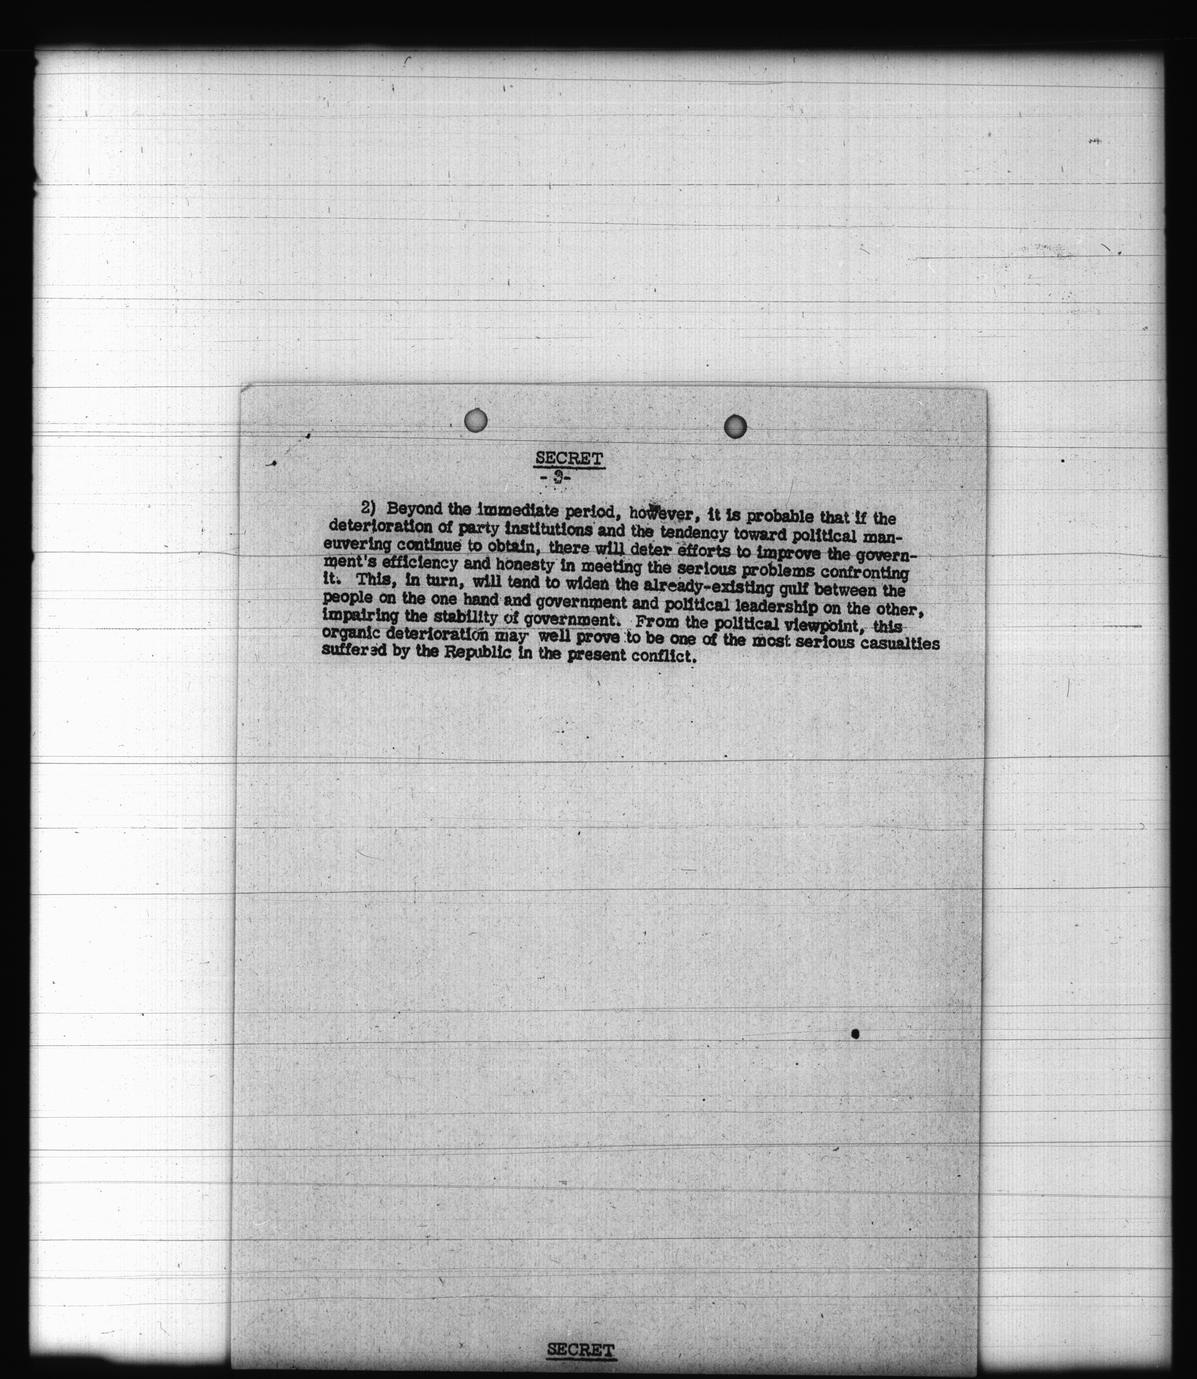 SECRET
- 3-
2) Beyond the immediate period, however, it is probable that if the
deterioration of party institutions and the tendency toward political man-
euvering continue to obtain, there will deter efforts to improve the govern-
ment's efficiency and honesty in meeting the serious problems confronting
it. This, in turn, will tend to widen the already-existing gulf between the
people on the one hand and government and political leadership on the other,
impairing the stability of government. From the political viewpoint, this
organic deterioration may well prove to be one of the most serious casualties
suffered by the Republic in the present conflict.
SECRET